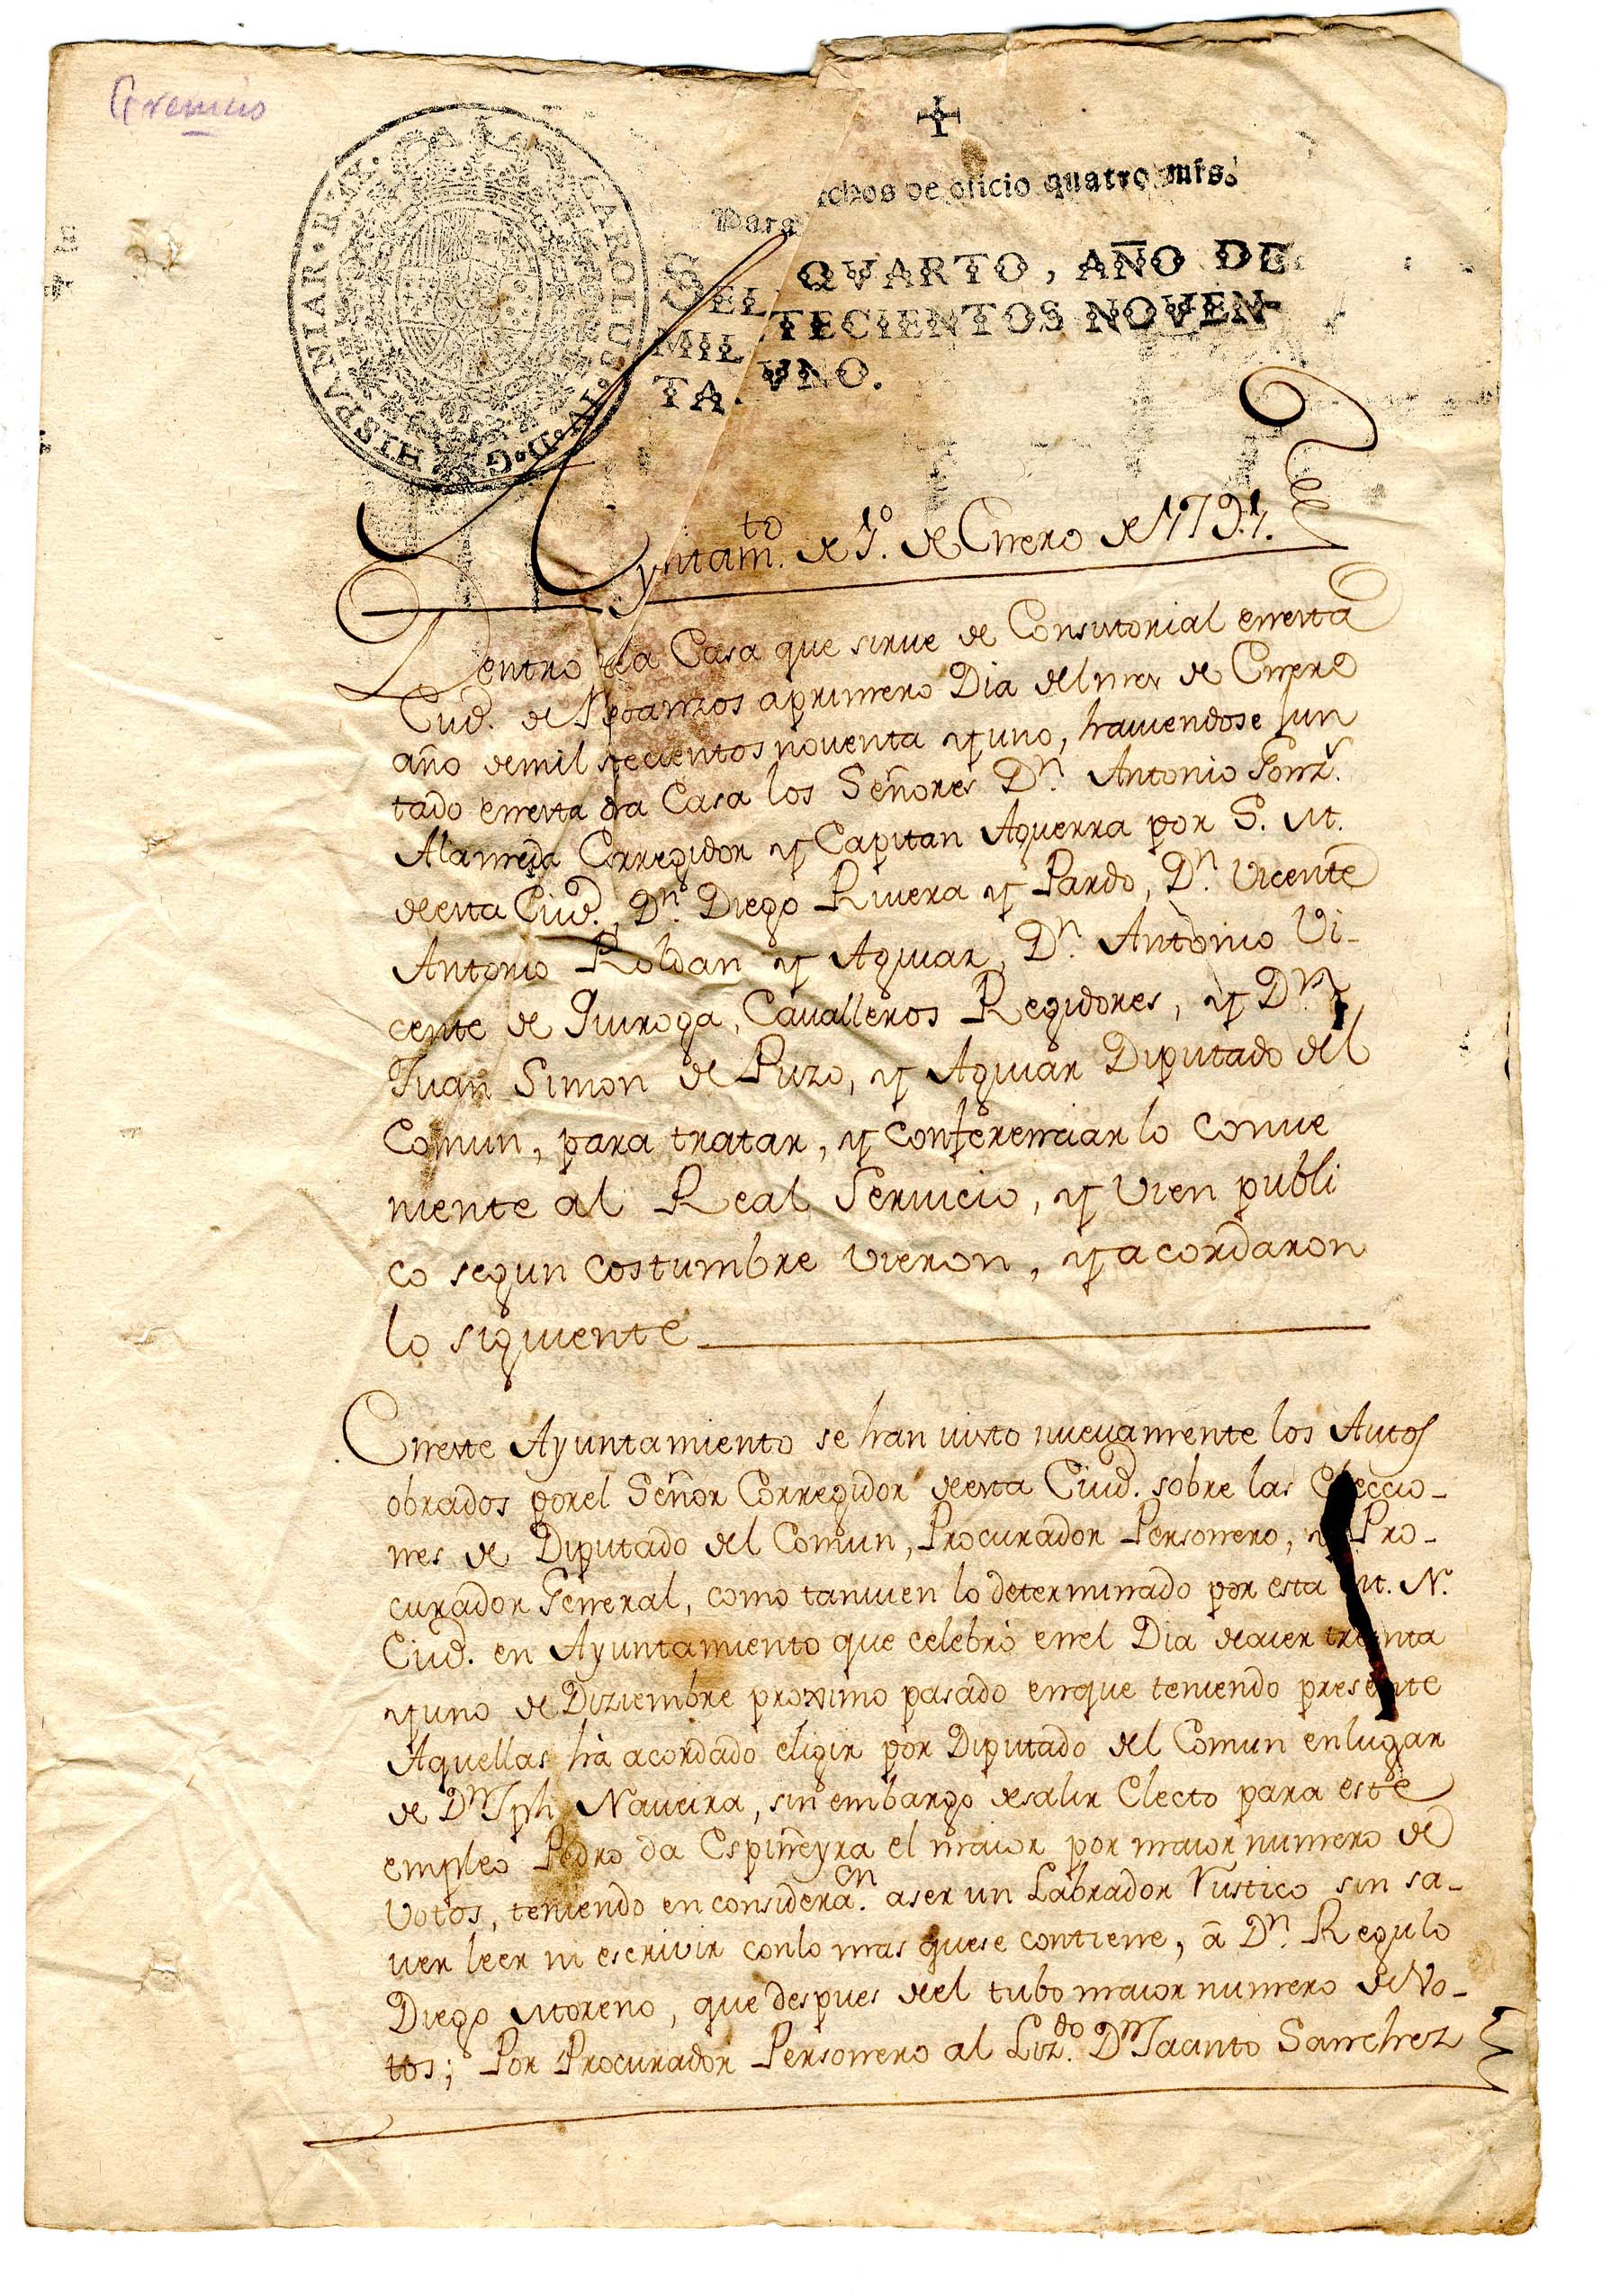 Gremio
CAROLUS·IV·D·G· HISPANIAR·REX·
Para chos de oficio quatro mrs.
SEL QVARTO, AÑO DE
MIL TECIENTOS NOVEN-
TA. VNO.
Ayntam.to de 1.º de Enero de 1791.
Dentro dela Casa que sirue de Consistorial enesta
Ciud. de Betanzos aprimero Dia del mes de Enero
año demil setecientos nouenta y uno, hauiendose Jun
tado enesta dha Casa los Señores D.n Antonio Gonz.z
Alameda Corregidor y Capitan Aguerra por S. M.
deesta Ciud., D.n Diego Riuera y Pardo, D.n Vicente
Antonio Roldan y Aguiar, D.n Antonio Vi-
cente de Quiroga, Caualleros Regidores, y D.n
Juan Simon de Puzo, y Aguiar Diputado del
Comun, para tratar, y conferenciar lo conue
niente al Real Seruicio, y Vien publi
co segun costumbre vieron, y acordaron
lo siguiente
Eneste Ayuntamiento se han visto nueuamente los Autos
obrados porel Señor Corregidor deesta Ciud. sobre las Eleccio-
nes de Diputado del Comun, Procurador Personero, y Pro-
curador General, como tanuien lo determinado por esta M. N.
Ciud. en Ayuntamiento que celebró enel Dia deaier treinta
y uno de Diziembre proximo pasado enque teniendo presente
Aquellas há acordado eligir por Diputado del Comun enlugar
de D.n Jph Naueira, sin embargo desalir Electo para este
empleo Pedro da Espiñeyra el maior por maior numero de
Votos, teniendo en considera.cn aser un Labrador Rustico sin sa-
uer leer ni escriuir conlo mas quese contiene, á D.n Regulo
Diego Moreno, que despues deel tubo maior numero de Vo-
tos; Por Procurador Personero al Liz.do D.n Jacinto Sanchez